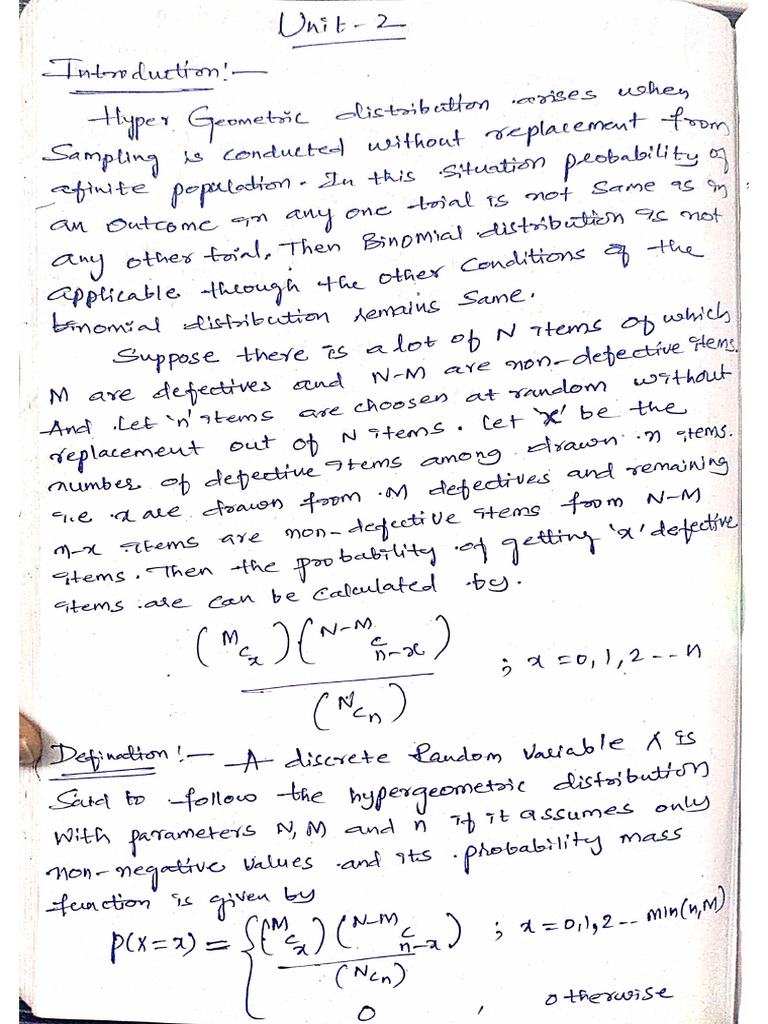 Unit-2
Introduction:-
Hyper Geometric distribution arises when
Sampling is conducted without replacement from
a finite population. In this situation probability of
an outcome in any one trial is not same as in
any other trial. Then Binomial distribution is not
applicable through the other conditions of the
binomial distribution remains same.
Suppose there is a lot of N items of which
M are defectives and N-M are non-defective items.
And let 'n' items are choosen at random without
replacement out of N items. Let 'x' be the
number of defective items among drawn n items.
i.e x are drawn from M defectives and remaining
n-x items are non-defective items from N-M
items. Then the probability of getting 'x' defective
items are can be calculated by.
(M c x) (N-M c n-x)
; x = 0, 1, 2 -- n
(N c n)
Defination:- A discrete Random variable X is
Said to follow the hypergeometric distribution
with parameters N, M and n if it assumes only
non-negative values and its probability mass
function is given by
P(X=x) = { (M c x) (N-M c n-x) ; x = 0,1,2 -- min(n,M)
(N c n)
0 , otherwise